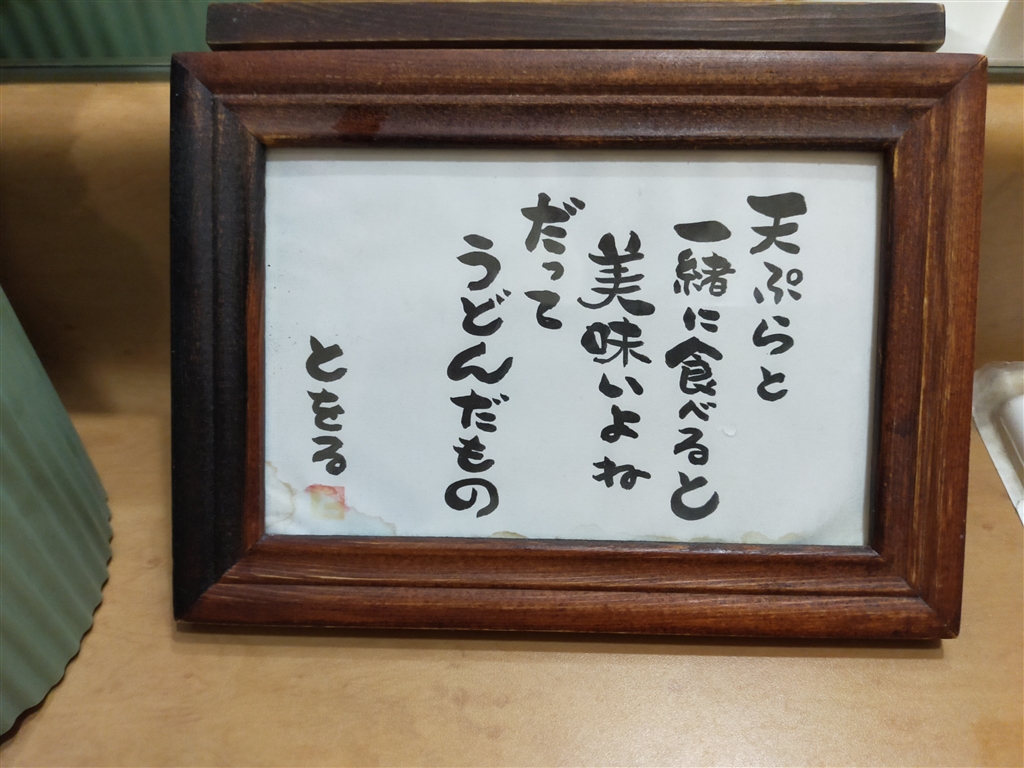 天ぷらと
一緒に食べると
美味いよね
だって
うどんだもの
とをる